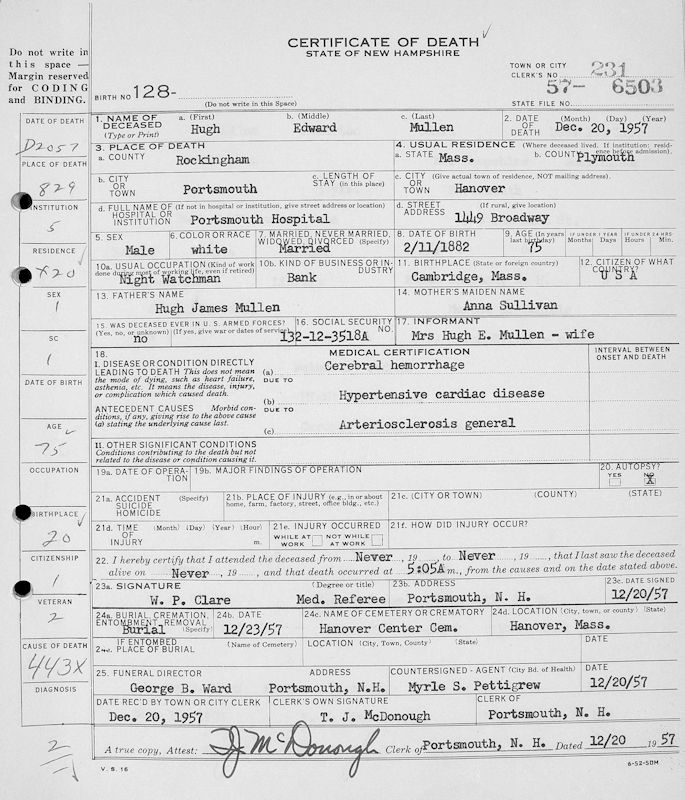 Do not write in
this space —
Margin reserved
for CODING
and BINDING.
CERTIFICATE OF DEATH
STATE OF NEW HAMPSHIRE
TOWN OR CITY
CLERK'S NO 231
57- 6503
STATE FILE NO.
BIRTH NO 128-
(Do not write in this Space)
DATE OF DEATH
D2057
PLACE OF DEATH
829
INSTITUTION
5
RESIDENCE
X20
SEX
1
SC
1
DATE OF BIRTH
AGE
75
OCCUPATION
BIRTHPLACE
20
CITIZENSHIP
1
VETERAN
2
CAUSE OF DEATH
443X
DIAGNOSIS
2
1. NAME OF DECEASED (Type or Print) a. (First) b. (Middle) c. (Last)
Hugh Edward Mullen
2. DATE OF DEATH (Month) (Day) (Year)
Dec. 20, 1957
3. PLACE OF DEATH
a. COUNTY Rockingham
4. USUAL RESIDENCE (Where deceased lived. If institution: residence before admission).
a. STATE Mass. b. COUNTY Plymouth
b. CITY OR TOWN Portsmouth
c. LENGTH OF STAY (in this place)
c. CITY (Give actual town of residence, NOT mailing address). OR TOWN Hanover
d. FULL NAME OF (If not in hospital or institution, give street address or location) HOSPITAL OR INSTITUTION Portsmouth Hospital
d. STREET ADDRESS (If rural, give location) 1449 Broadway
5. SEX Male
6. COLOR OR RACE white
7. MARRIED, NEVER MARRIED, WIDOWED, DIVORCED (Specify) Married
8. DATE OF BIRTH 2/11/1882
9. AGE (In years last birthday) 75
IF UNDER 1 YEAR Months Days
IF UNDER 24 HRS. Hours Min.
10a. USUAL OCCUPATION (Kind of work done during most of working life, even if retired) Night Watchman
10b. KIND OF BUSINESS OR INDUSTRY Bank
11. BIRTHPLACE (State or foreign country) Cambridge, Mass.
12. CITIZEN OF WHAT COUNTRY? U S A
13. FATHER'S NAME
Hugh James Mullen
14. MOTHER'S MAIDEN NAME
Anna Sullivan
15. WAS DECEASED EVER IN U. S. ARMED FORCES? (Yes, no, or unknown) (If yes, give war or dates of service) no
16. SOCIAL SECURITY NO. 132-12-3518A
17. INFORMANT
Mrs Hugh E. Mullen - wife
18.
MEDICAL CERTIFICATION
INTERVAL BETWEEN ONSET AND DEATH
I. DISEASE OR CONDITION DIRECTLY LEADING TO DEATH This does not mean the mode of dying, such as heart failure, asthenia, etc. It means the disease, injury, or complication which caused death.
(a) Cerebral hemorrhage
DUE TO
(b) Hypertensive cardiac disease
ANTECEDENT CAUSES Morbid conditions, if any, giving rise to the above cause (a) stating the underlying cause last.
DUE TO
(c) Arteriosclerosis general
II. OTHER SIGNIFICANT CONDITIONS
Conditions contributing to the death but not related to the disease or condition causing it.
19a. DATE OF OPERATION
19b. MAJOR FINDINGS OF OPERATION
20. AUTOPSY?
YES NO X
21a. ACCIDENT SUICIDE HOMICIDE (Specify)
21b. PLACE OF INJURY (e.g., in or about home, farm, factory, street, office bldg., etc.)
21c. (CITY OR TOWN) (COUNTY) (STATE)
21d. TIME OF INJURY (Month) (Day) (Year) (Hour) m.
21e. INJURY OCCURRED
WHILE AT WORK NOT WHILE AT WORK
21f. HOW DID INJURY OCCUR?
22. I hereby certify that I attended the deceased from Never, 19 , to Never, 19 , that I last saw the deceased
alive on Never, 19 , and that death occurred at 5:05A m., from the causes and on the date stated above.
23a. SIGNATURE (Degree or title)
W. P. Clare Med. Referee
23b. ADDRESS
Portsmouth, N. H.
23c. DATE SIGNED
12/20/57
24a. BURIAL, CREMATION, ENTOMBMENT, REMOVAL (Specify) Burial
24b. DATE
12/23/57
24c. NAME OF CEMETERY OR CREMATORY
Hanover Center Cem.
24d. LOCATION (City, town, or county) (State)
Hanover, Mass.
IF ENTOMBED
24e. PLACE OF BURIAL (Name of Cemetery) LOCATION (City, Town, County) (State) DATE
25. FUNERAL DIRECTOR ADDRESS
George B. Ward Portsmouth, N.H.
COUNTERSIGNED - AGENT (City Bd. of Health) DATE
Myrle S. Pettigrew 12/20/57
DATE REC'D BY TOWN OR CITY CLERK
Dec. 20, 1957
CLERK'S OWN SIGNATURE
T. J. McDonough
CLERK OF
Portsmouth, N. H.
A true copy, Attest: TJ McDonough Clerk of Portsmouth, N. H. Dated 12/20 1957
V. S. 16
6-52-50M